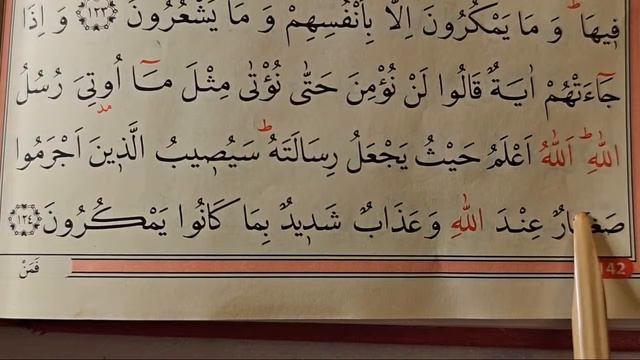 فِيهَاۜ وَ مَا يَمْكُرُونَ اِلَّا بِاَنْفُسِهِمْ وَ مَا يَشْعُرُونَ ﴿١٢٣﴾ وَ اِذَا
جَٓاءَتْهُمْ اٰيَةٌ قَالُوا لَنْ نُؤْمِنَ حَتّٰى نُؤْتٰى مِثْلَ مَٓا اُو۫تِيَ رُسُلُ
مد
اللّٰهِۜ اَللّٰهُ اَعْلَمُ حَيْثُ يَجْعَلُ رِسَالَتَهُۜ سَيُصِيبُ الَّذِينَ اَجْرَمُوا
صَغَارٌ عِنْدَ اللّٰهِ وَعَذَابٌ شَدِيدٌ بِمَا كَانُوا يَمْكُرُونَ ﴿١٢٤﴾
142 فَمَنْ